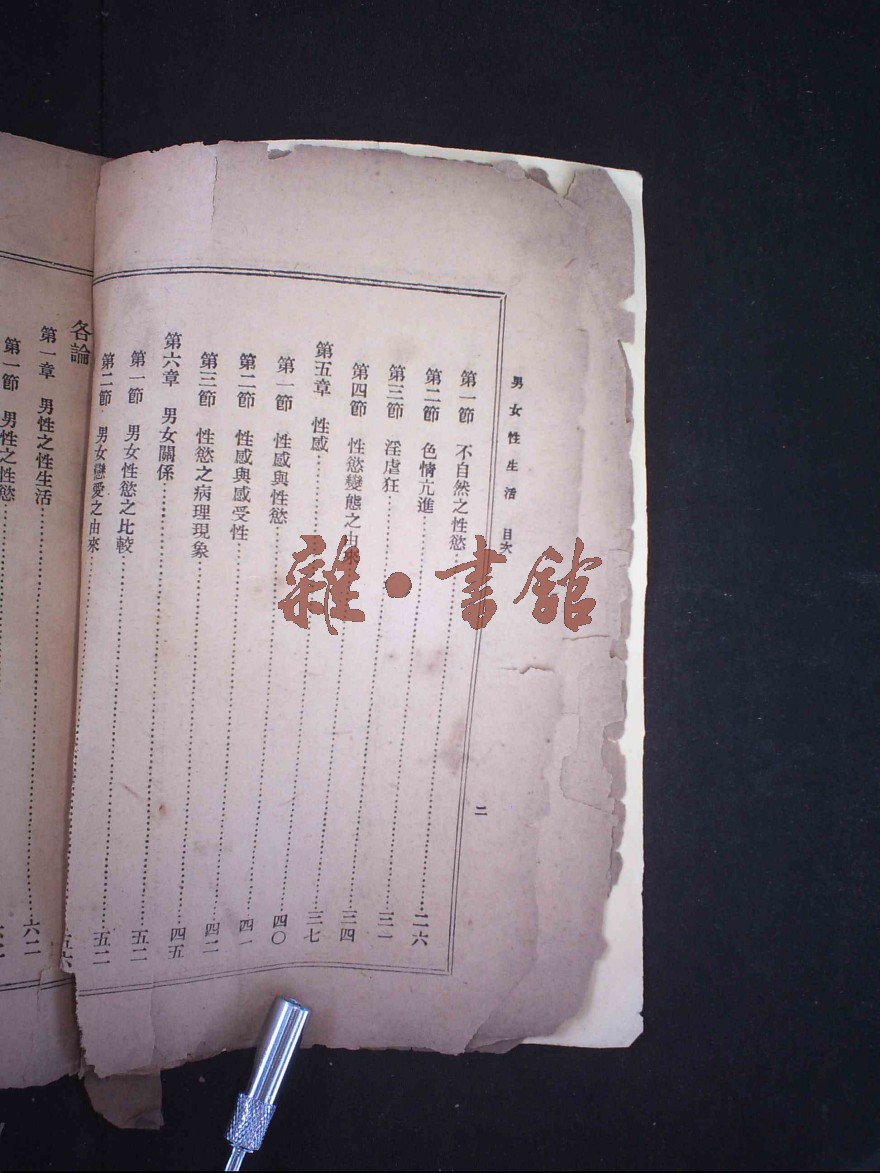 男女性生活 目次
二
第一節 不自然之性慾……二六
第二節 色情亢進……三一
第三節 淫虐狂……三四
第四節 性慾變態之由來……三七
第五章 性感……四〇
第一節 性感與性慾……四一
第二節 性感與感受性……四二
第三節 性慾之病理現象……四五
第六章 男女關係……五二
第一節 男女性慾之比較……五二
第二節 男女戀愛之由來……五六
各論
第一章 男性之性生活……六二
第一節 男性之性慾……
雜·書館